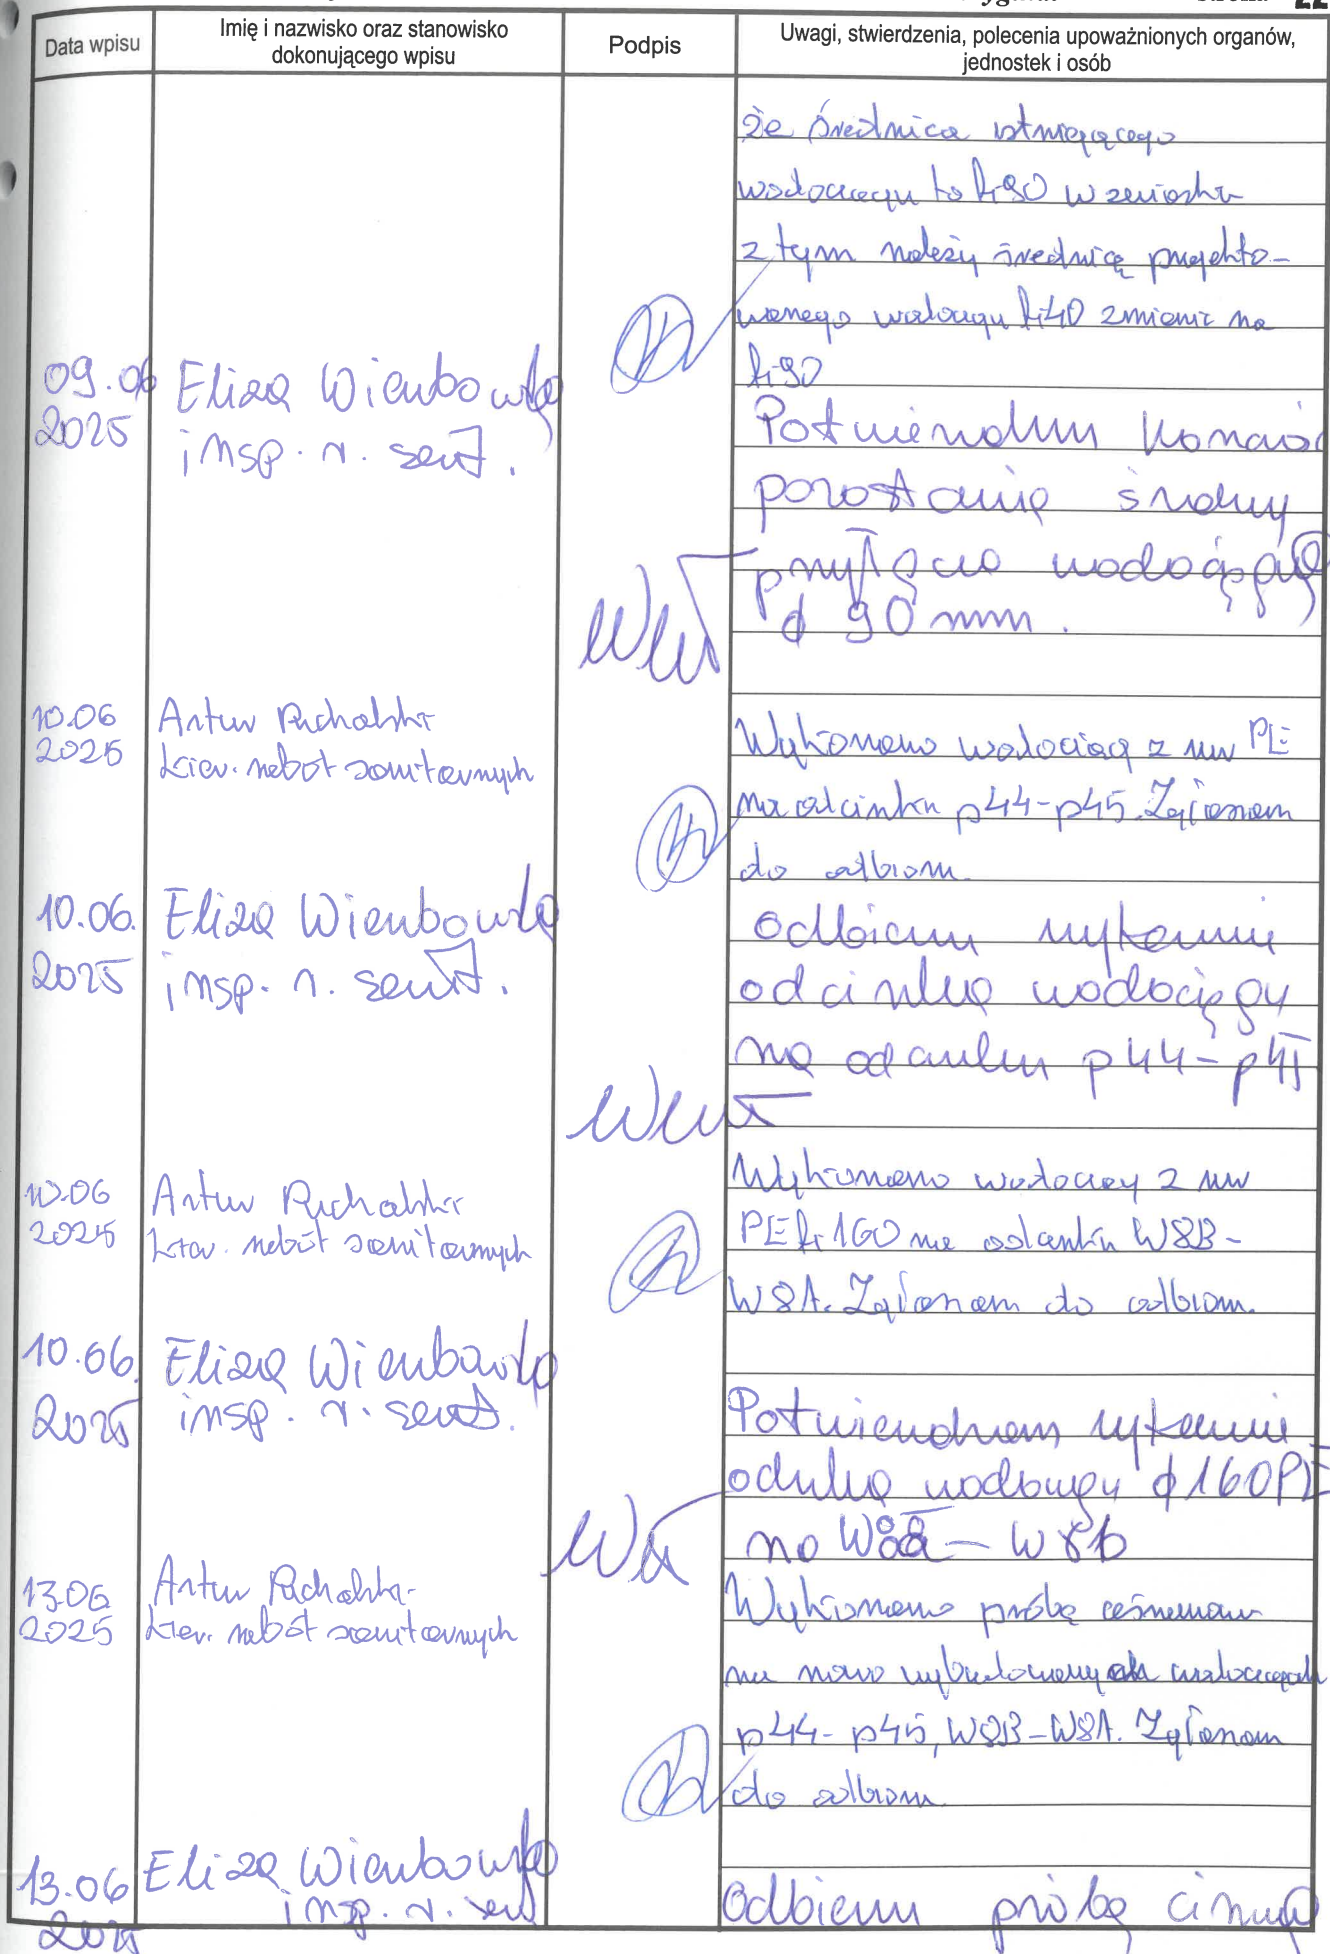 22
Data wpisu
Imię i nazwisko oraz stanowisko
dokonującego wpisu
Podpis
Uwagi, stwierdzenia, polecenia upoważnionych organów,
jednostek i osób
że średnica istniejącego
wodociągu to fi 90 w związku
z tym należy średnicę projekto-
wanego wodociągu fi 40 zmienić na
fi 90
09.06
2025
Eliza
insp. n. sanit.
Potwierdzam konieczność
pozostania średnicy
przyłącza wodociągu
ϕ 90 mm.
10.06
2025
Artur
kier. robót sanitarnych
Wykonano wodociąg z rur PE
na odcinku p44-p45. Zgłaszam
do odbioru.
10.06.
2025
Eliza
insp. n. sanit.
Odbieram wykonanie
odcinka wodociągu
na odcinku p44-p45
10.06
2025
Artur
kier. robót sanitarnych
Wykonano wodociąg z rur
PE fi 160 na odcinku W8B-
W8A. Zgłaszam do odbioru.
10.06.
2025
Eliza
insp. n. sanit.
Potwierdzam wykonanie
odcinka wodociągu ϕ160PE
na W8a - W8b
13.06
2025
Artur
kier. robót sanitarnych
Wykonano próbę ciśnieniową
na nowo wybudowanych wodociągach
p44-p45, W8B-W8A. Zgłaszam
do odbioru.
13.06
2025
Eliza
insp. n. sanit
Odbieram próbę